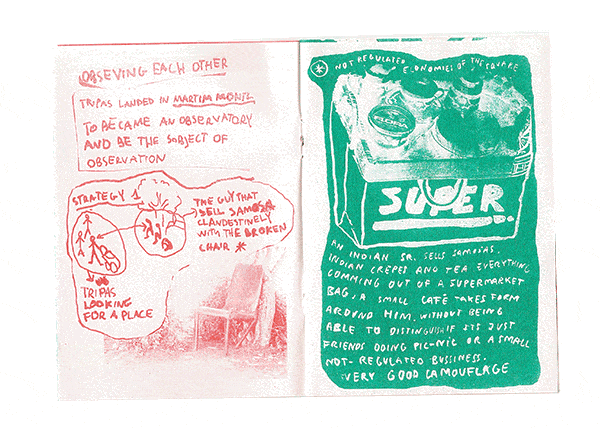 OBSEVING EACH OTHER
TRIPAS LANDED IN MARTIM MONIZ
TO BECAME AN OBSERVATORY
AND BE THE SOBJECT OF
OBSERVATION
STRATEGY 1
THE GUY THAT
SELL SAMOSA
CLANDESTINELY
WITH THE BROKEN
CHAIR *
TRIPAS
LOOKING
FOR A PLACE
* NOT REGULATED ECONOMIES OF THE SQUARE
SUPER
AN INDIAN SR. SELLS SAMOSAS,
INDIAN CREPES AND TEA EVERYTHING
COMMING OUT OF A SUPERMARKET
BAG, A SMALL CAFÉ TAKES FORM
AROUND HIM, WITHOUT BEING
ABLE TO DISTINGUISH IF ITS JUST
FRIENDS DOING PIC-NIC OR A SMALL
NOT-REGULATED BUSSINESS.
VERY GOOD CAMOUFLAGE